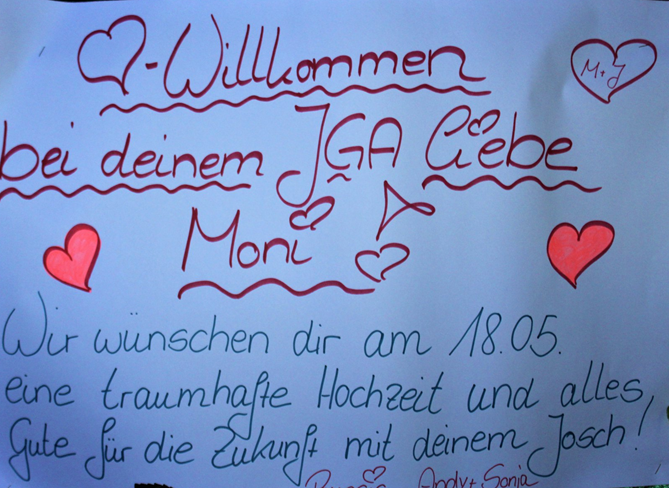 ♡-Willkommen
M+J
bei deinem JGA liebe
Moni
Wir wünschen dir am 18.05.
eine traumhafte Hochzeit und alles
Gute für die Zukunft mit deinem Josch!
Andy + Sonja